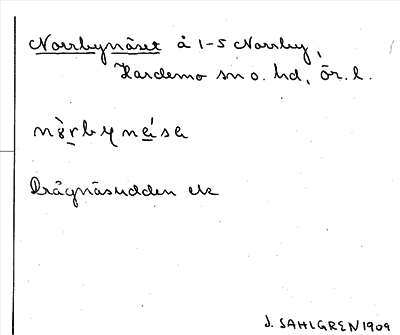 Norrbynäset å 1-5 Norrby,
Hardemo sn o. hd, Ör. l.
nòrbynä́sa
Drågnäsudden ek
J. SAHLGREN 1909